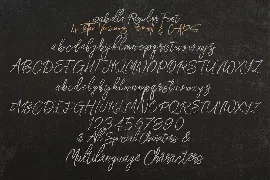 Regular Font
abcdefghijklmnopqrstuvwxyz
ABCDEFGHIJKLMNOPQRSTUVWXYZ
abcdefghijklmnopqrstuvwxyz
ABCDEFGHIJKLMNOPQRSTUVWXYZ
1234567890
& All Special Characters &
Multilanguage Characters